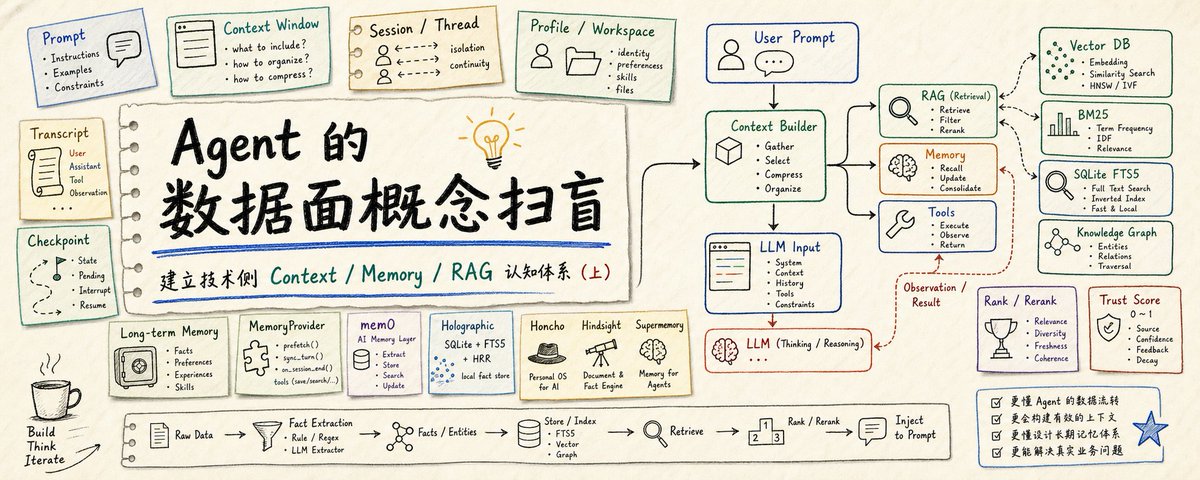 Prompt
• Instructions
• Examples
• Constraints
Context Window
• what to include?
• how to organize?
• how to compress?
Session / Thread
isolation
continuity
Profile / Workspace
• identity
• preferencess
• skills
• files
Transcript
User
Assistant
Tool
Observation
...
Checkpoint
• State
• Pending
• Interrupt
• Resume
Agent 的
数据面概念扫盲
建立技术侧 Context / Memory / RAG 认知体系 (上)
User Prompt
Context Builder
• Gather
• Select
• Compress
• Organize
LLM Input
• System
• Context
• History
• Tools
• Constraints
LLM (Thinking / Reasoning)
...
RAG (Retrieval)
• Retrieve
• Filter
• Rerank
Memory
• Recall
• Update
• Consolidate
Tools
• Execute
• Observe
• Return
Observation /
Result
Vector DB
• Embedding
• Similarity Search
• HNSW / IVF
BM25
• Term Frequency
• IDF
• Relevance
SQLite FTS5
• Full Text Search
• Inverted Index
• Fast & Local
Knowledge Graph
• Entities
• Relations
• Traversal
Rank / Rerank
• Relevance
• Diversity
• Freshness
• Coherence
Trust Score
0 ~ 1
• Source
• Confidence
• Feedback
• Decay
Long-term Memory
• Facts
• Preferences
• Experiences
• Skills
MemoryProvider
• prefetch()
• sync_turn()
• on_session_end()
tools (save/search/...)
mem0
AI Memory Layer
• Extract
• Store
• Search
• Update
Holographic
SQLite + FTS5
+ HRR
local fact store
Honcho
Personal OS
for AI
Hindsight
Document &
Fact Engine
Supermemory
Memory for
Agents
Build
Think
Iterate
Raw Data
Fact Extraction
• Rule / Regex
• LLM Extractor
Facts / Entities
Store / Index
• FTS5
• Vector
• Graph
Retrieve
1 2 3
Rank / Rerank
Inject
to Prompt
更懂 Agent 的数据流转
更会构建有效的上下文
更懂设计长期记忆体系
更能解决真实业务问题